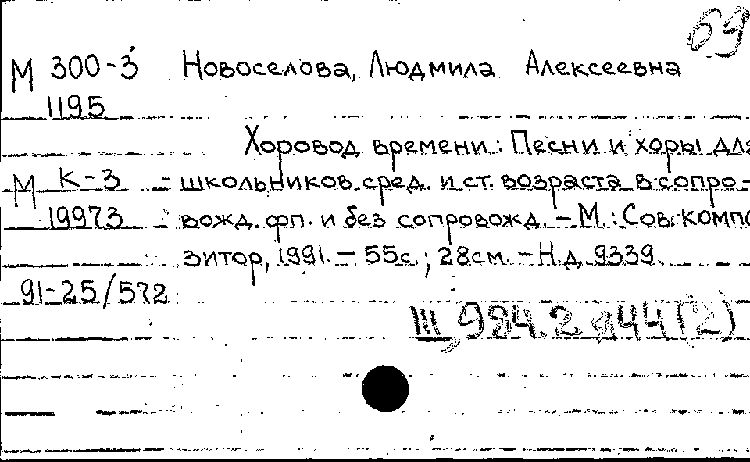 69
М 300-3 Новоселова, Людмила Алексеевна
1195
Хоровод времени: Песни и хоры для
М К-3 школьников сред. и ст. возраста в сопро-
19973 вожд. фп. и без сопровожд. – М.: Сов. компо
зитор, 1991. – 55с.; 28см. – Н.д. 9339
91-25/572